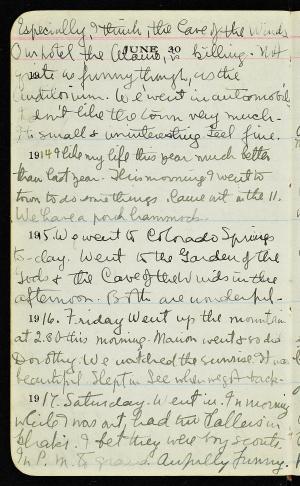 Especially, I think, the Cave of the Winds
Our hotel the Alamo, is killing. Not
JUNE 30
quite as funny though, as the
Auditorium. We went in automobile
I don't like the town very much.
It's small & uninteresting. Feel fine.
1914 I like my life this year much better
than last year. This morning I went to
town to do some things. Came out in the 11.
We have a porch hammock.
1915. We went to Colorado Springs
to-day. Went to the Garden of the
Gods & the Cave of the Winds in the
afternoon. Both are wonderful.
1916. Friday Went up the mountain
at 2.30 this morning. Marion went & so did
Dorothy. We watched the sunrise. It was
beautiful. Slept in Lee when we got back.
1917. Saturday. Went in. In morning
while I was out, had two callers in
khaki. I bet they were boy scouts.
In P.M. to Awfully funny.